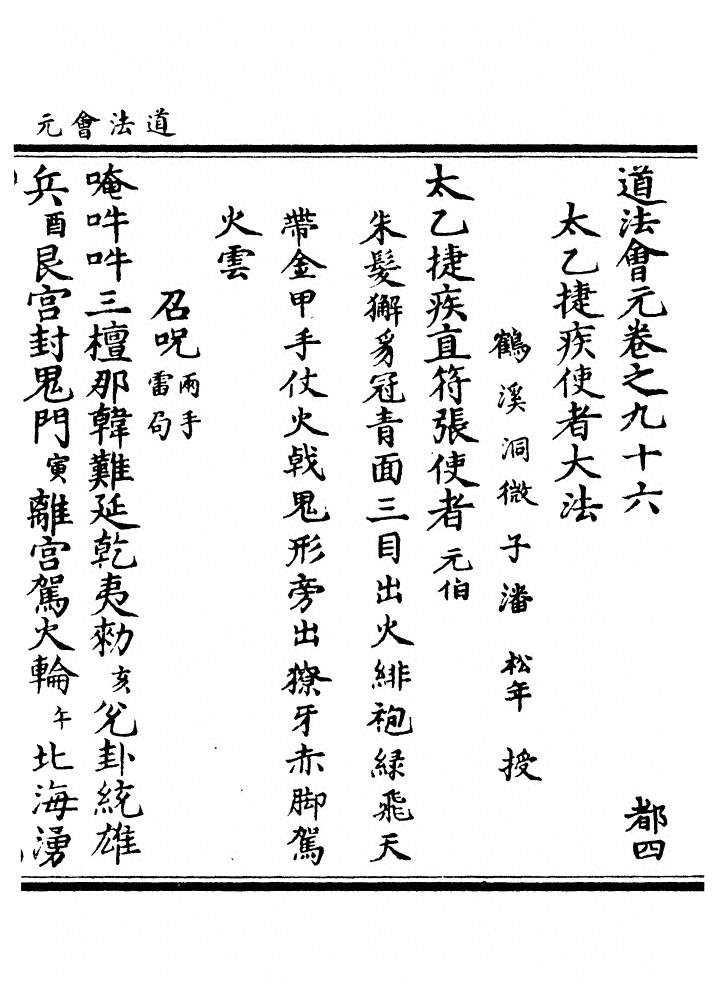 道法會元
道法會元卷之九十六 都四
太乙捷疾使者大法
鶴溪洞微子潘 松年 授
太乙捷疾直符張使者 元伯
朱髮獬豸冠青面三目出火緋袍綠飛天
帶金甲手仗火戟鬼形旁出獠牙赤脚駕
火雲
召呪 兩手雷局
唵吽吽三檀那韓難延乾夷勑 亥 兊卦統雄
兵 酉 艮宮封鬼門 寅 離宮駕火輪 午 北海湧